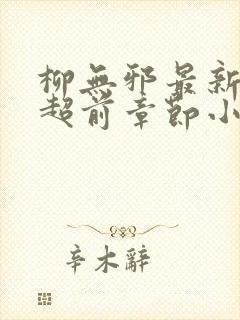 柳無邪最新
超前章節小
辛木辭